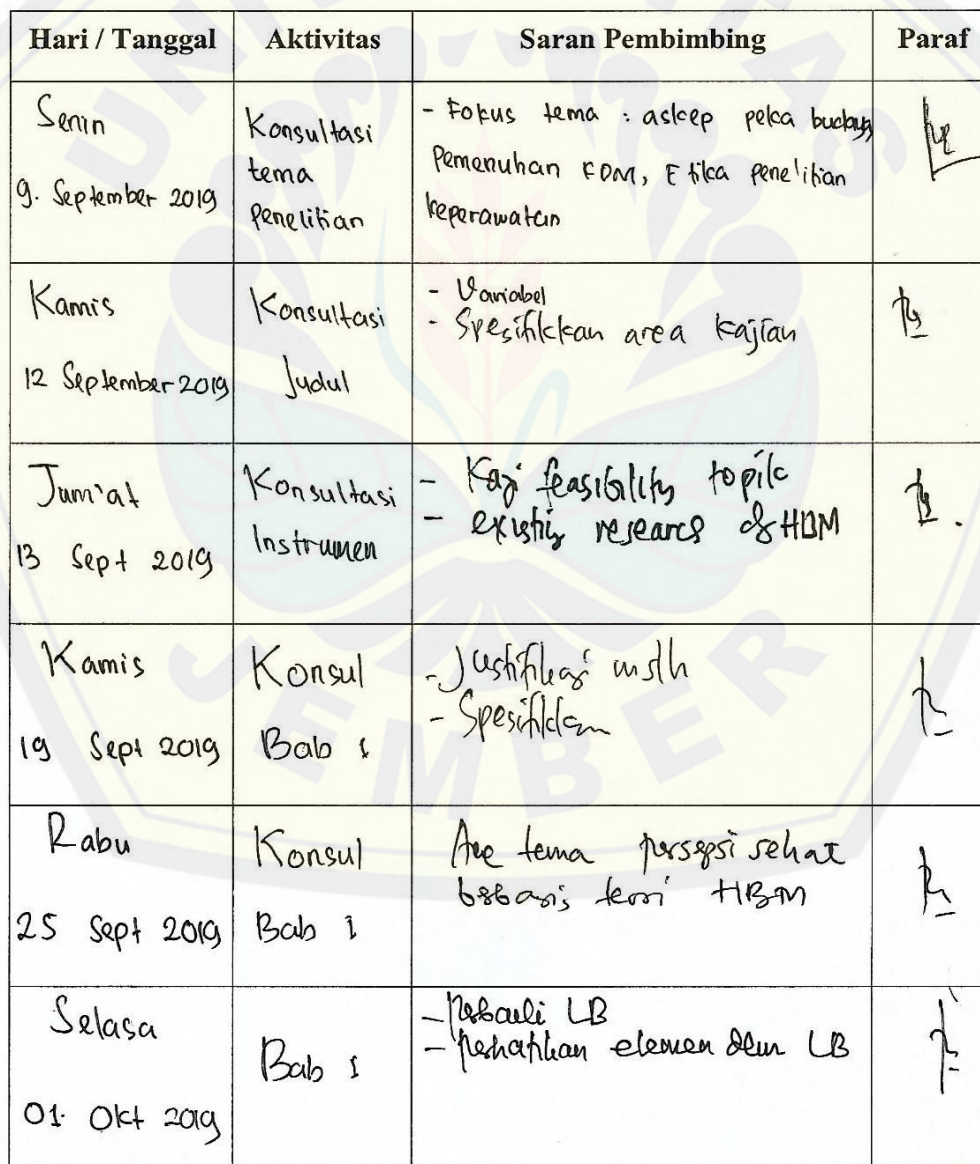 Hari / Tanggal Aktivitas Saran Pembimbing Paraf
Senin
9. September 2019
Konsultasi
tema
Penelitian
- Fokus tema : askep peka budaya
Pemenuhan KDM, Etika penelitian
keperawatan
Kamis
12 September 2019
Konsultasi
Judul
- Variabel
- Spesifikkan area kajian
Jum'at
13 Sept 2019
Konsultasi
Instrumen
- Kaji feasibility topik
- existing research of HBM
Kamis
19 Sept 2019
Konsul
Bab 1
- Justifikasi mslh
- Spesifikkan
Rabu
25 Sept 2019
Konsul
Bab 1
Acc tema persepsi sehat
berbasis teori HBM
Selasa
01. Okt 2019
Bab 1
- Perbaiki LB
- Perhatikan elemen dlm LB
UNIVERSITAS
JEMBER